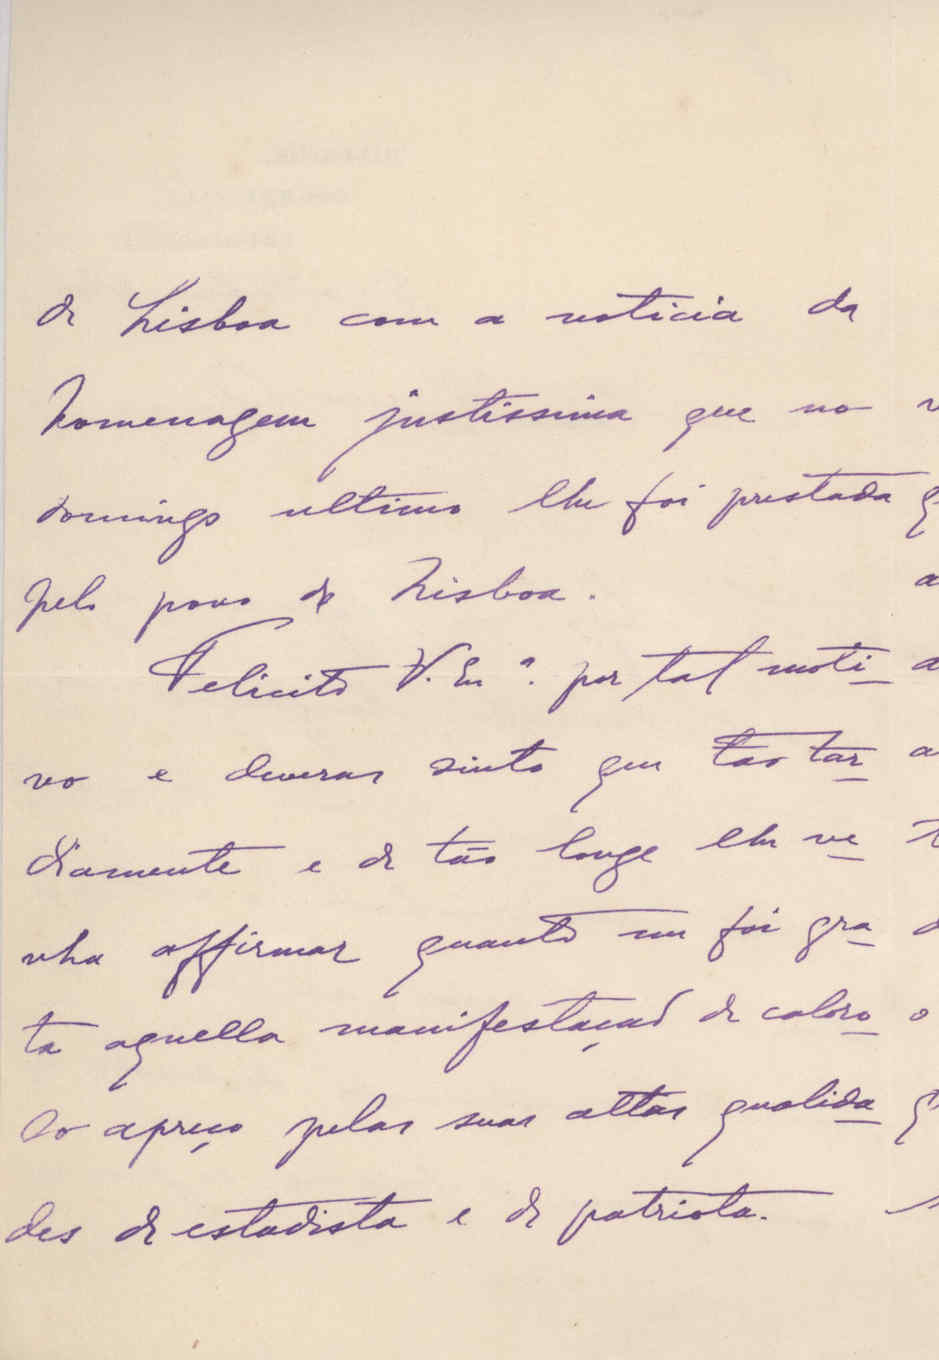 de Lisboa com a noticia da
homenagem justissima que no
domingo ultimo lhe foi prestada
pelo povo de Lisboa.
Felicito V. Exª. por tal moti-
vo e deveras sinto que tão tar-
diamente e de tão longe lhe ve-
nha affirmar quanto me foi gra-
ta aquella manifestação de caloro-
so apreço pelas suas altas qualida-
des de estadista e de patriota.